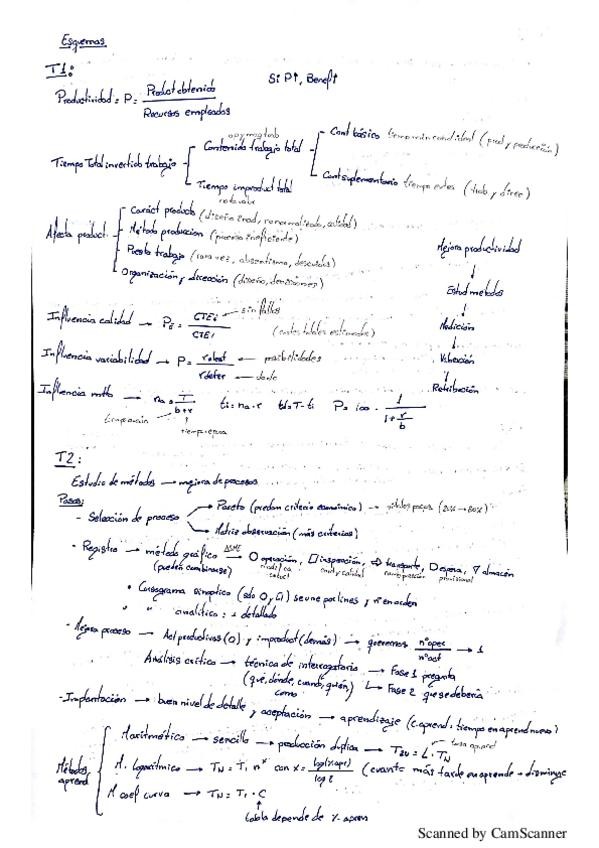 Esquemas
T1:
Productividad = P = Product obtenido / Recursos empleados
Si P↑, Benef↑
Tiempo Total invertido trabajo
Contenido trabajo total
Cont básico tiempo min cond ideal (prod y producción)
Cont suplementario tiempo extra (trab y direc)
Tiempo improduct total
Afecta product
Caráct producto (diseño inad, no normalizado, calidad)
Método producción (proceso ineficiente)
Puesto trabajo (absentismo, descuidos)
Organización y dirección (diseño, decisiones)
Mejora productividad
↓
Estud métodos
↓
Medición
↓
Valoración
↓
Retribución
Influencia calidad → PE = CTEi / CTEi
sin fallos
(costes totales estimados)
Influencia variabilidad → P =
Influencia mtto → na = T / b+r ti = na · r td = T - ti P = 100 · 1 / 1 + r/b
T2:
Estudio de métodos → mejora de procesos
Pasos:
- Selección de proceso
Pareto (predom criterio económico) → (20% → 80%)
Matriz observación (más criterios)
- Registro → método gráfico ASME → O operación, □ inspección, ⇨ transporte, D espera, ▽ almacén
(pueden combinarse)
cant y calidad
provisional
• Cursograma sinóptico (sólo O, □) se une por lines, y nº en orden
" " analítico: + detallado
- Mejora proceso → Act productivas (O) y improduct (demás) → queremos nº oper / nº act → 1
Análisis crítico → técnica de interrogatorio
(qué, dónde, cuando, quién,
como
→ Fase 1 pregunta
→ Fase 2 que se debería
- Implantación → buen nivel de detalle y aceptación → aprendizaje (c. aprend: tiempo en aprend nuevo)
Métodos aprend
M aritmético → sencillo → producción duplica → T2N = L · TN
tasa aprend
M. logarítmico → TN = T1 n^x con x = (cuanto más tarde en aprende → disminuye
M coef curva → TN = T1 · C
↑
tabla depende de % apren
Scanned by CamScanner